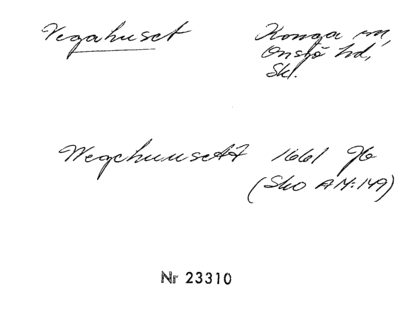 Vegahuset Konga sn,
Onsjö hd,
Skl.
Wegehuusett 1661 Jb
(Sko AM:149)
Nr 23310